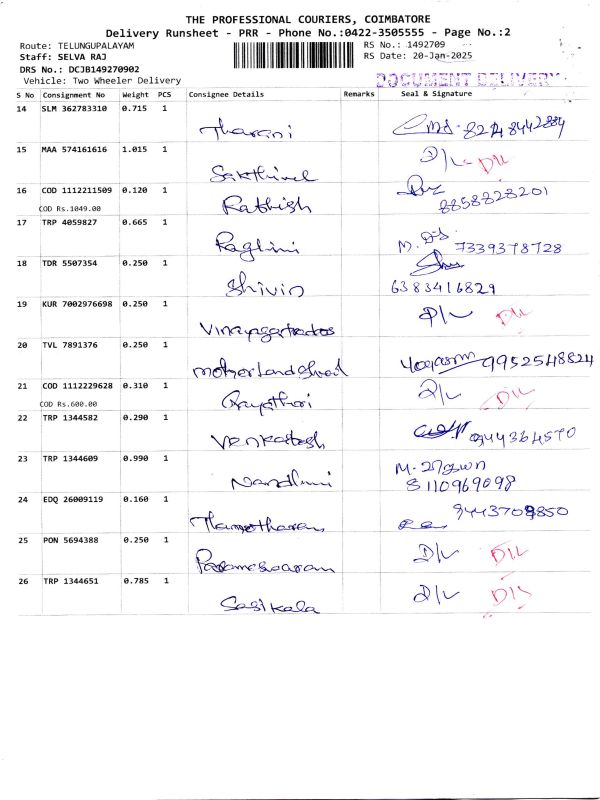 THE PROFESSIONAL COURIERS, COIMBATORE
Delivery Runsheet - PRR - Phone No.:0422-3505555 - Page No.:2
Route: TELUNGUPALAYAM RS No.: 1492709
Staff: SELVA RAJ RS Date: 20-Jan-2025
DRS No.: DCJB149270902
Vehicle: Two Wheeler Delivery DOCUMENT DELIVERY
S No Consignment No Weight PCS Consignee Details Remarks Seal & Signature
14 SLM 362783310 0.715 1
Tharani
15 MAA 574161616 1.015 1 D/L
Sakthivel
16 COD 1112211509 0.120 1
COD Rs.1049.00 Rathish 8858828201
17 TRP 4059827 0.665 1
Ragini 7339378728
18 TDR 5507354 0.250 1
Shivin 6383416829
19 KUR 7002976698 0.250 1 D/L
20 TVL 7891376 0.250 1
9952548824
21 COD 1112229628 0.310 1 D/L
COD Rs.600.00 Gayathari
22 TRP 1344582 0.290 1
Venkatesh
23 TRP 1344609 0.990 1
Nandhini 8110969098
24 EDQ 26009119 0.160 1
25 PON 5694388 0.250 1 D/L
Parameswaram
26 TRP 1344651 0.785 1 D/L
Sasikala